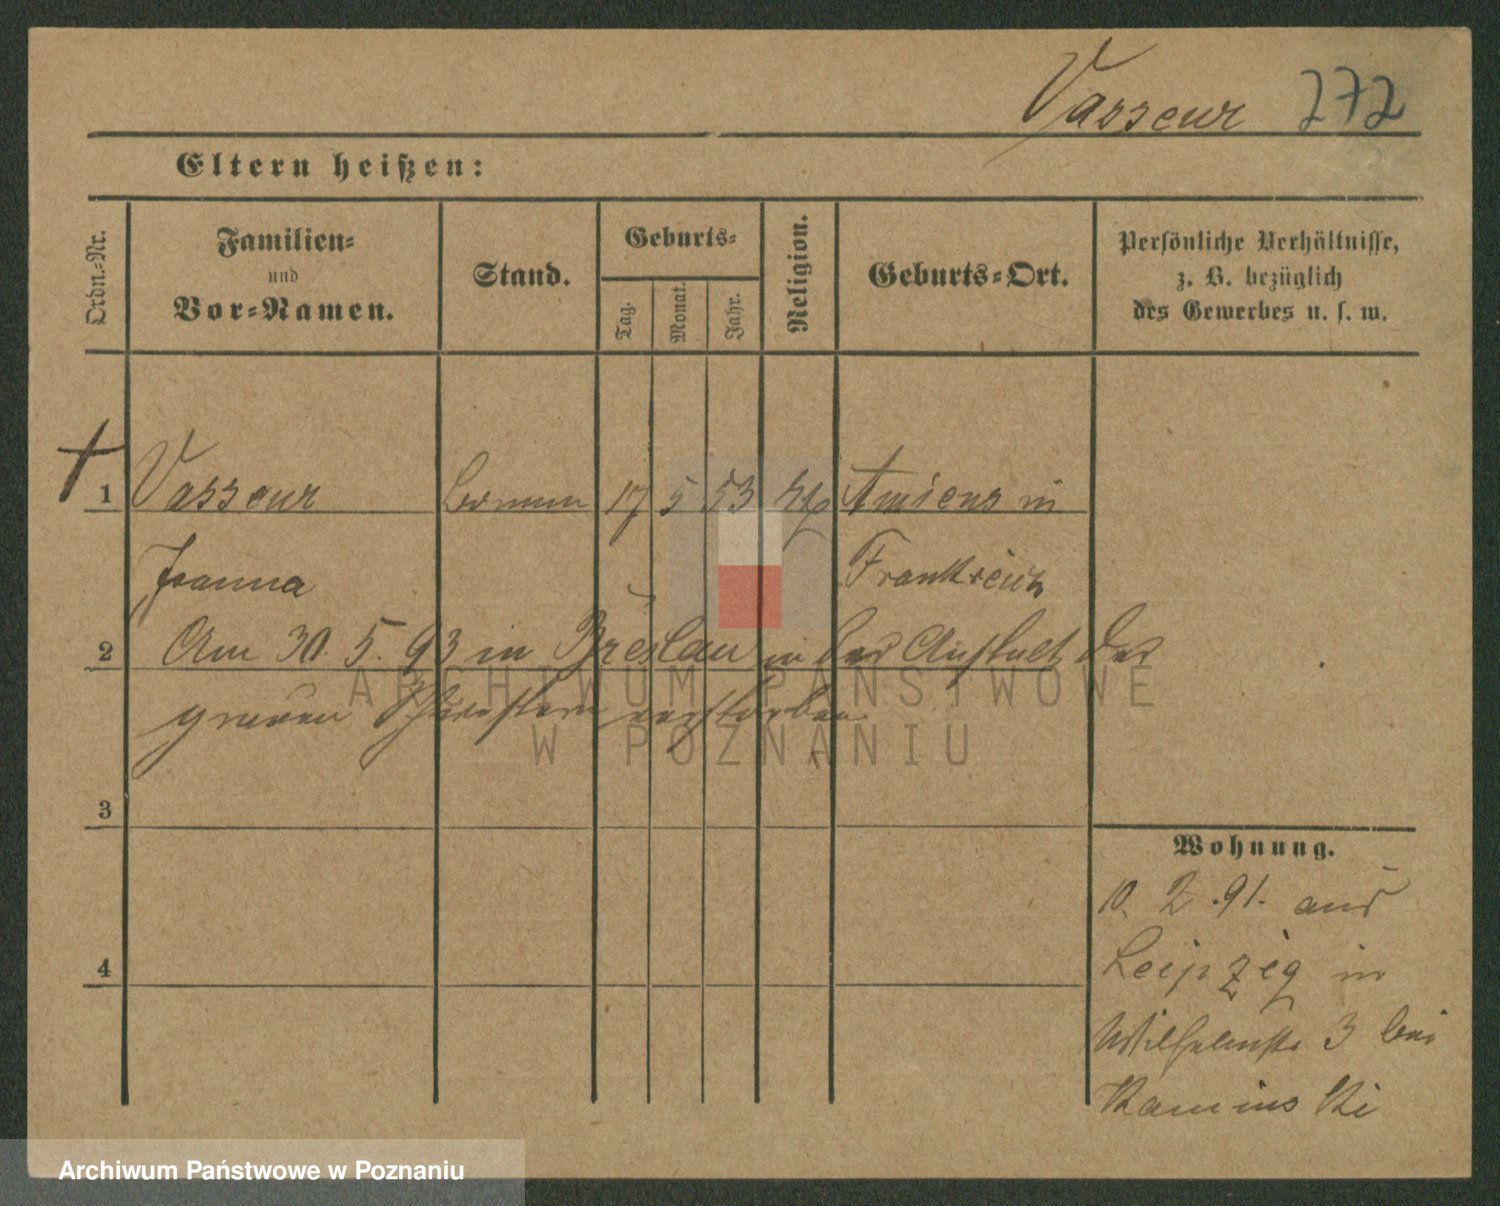 Vasseur 272
Eltern heißen:
Ordn.-Nr.
Familien-
und
Vor-Namen.
Stand.
Geburts-
Tag.
Monat.
Jahr.
Religion.
Geburts-Ort.
Persönliche Verhältnisse,
z. B. bezüglich
des Gewerbes u. s. w.
1 Vasseur Bonne 17 5 53 kth Amiens in
Joanna Frankreich
2 Am 30. 5. 93 in Breslau in der Anstalt der
grauen Schwestern verstorben
3
4
Wohnung.
10. 2. 91. aus
Leipzig in
Wilhelmstr 3 bei
Kaminski
ARCHIWUM PAŃSTWOWE
W POZNANIU
Archiwum Państwowe w Poznaniu